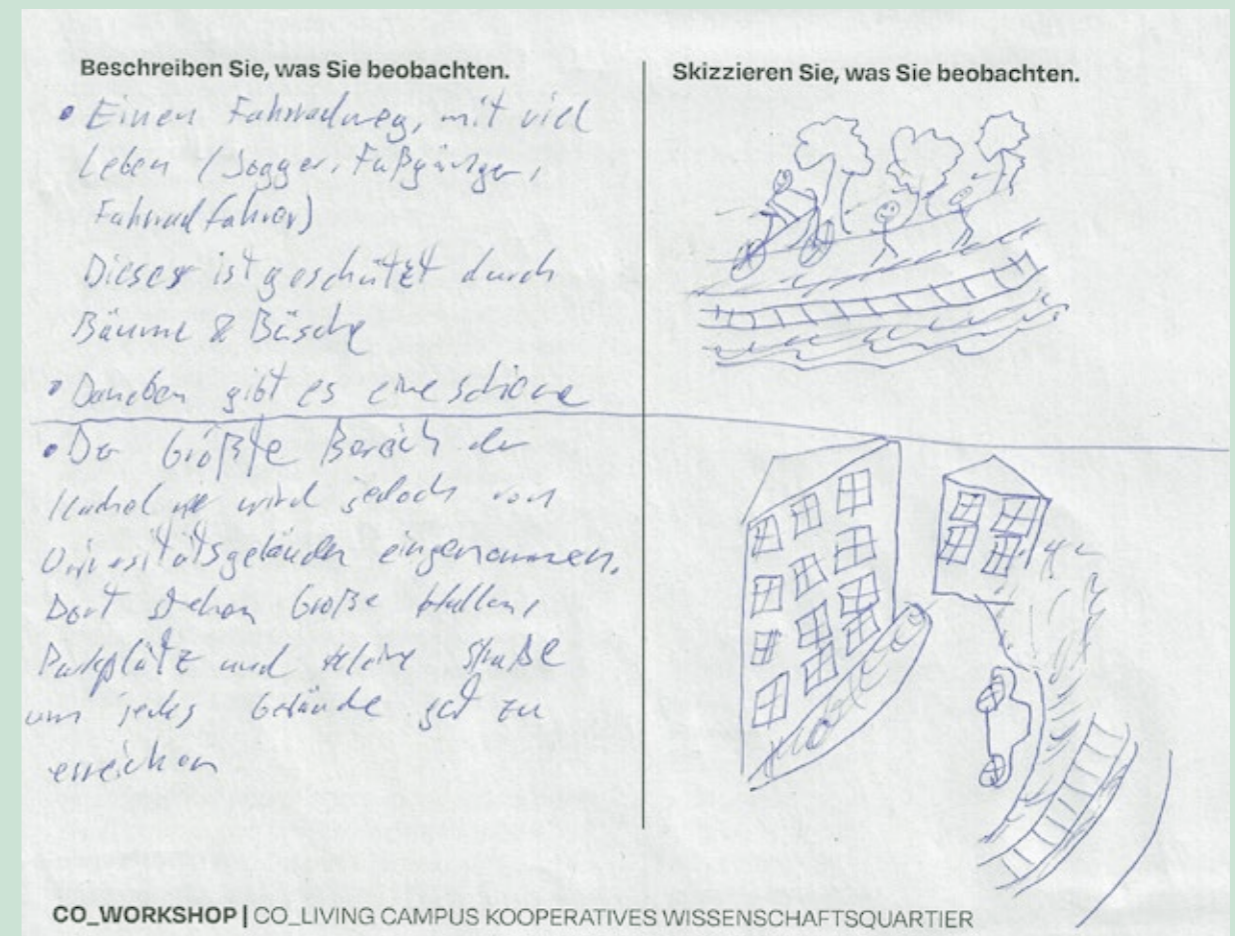 Beschreiben Sie, was Sie beobachten.
• Einen Fahrradweg, mit viel
Leben (Jogger, Fußgänger,
Fahrradfahrer)
Dieser ist geschützt durch
Bäume & Büsche
• Daneben gibt es eine schiene
• Der Größte Bereich der
wird jedoch von
Universitätsgeländen eingenommen.
Dort stehen Große Hallen,
Parkplätz und kleine Straße
um jedes Gelände gut zu
erreichen
Skizzieren Sie, was Sie beobachten.
CO_WORKSHOP | CO_LIVING CAMPUS KOOPERATIVES WISSENSCHAFTSQUARTIER